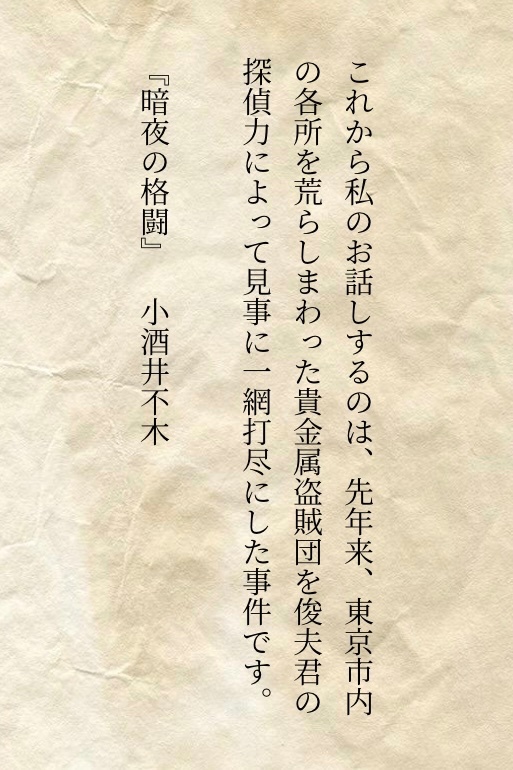 これから私のお話しするのは、先年来、東京市内
の各所を荒らしまわった貴金属盗賊団を俊夫君の
探偵力によって見事に一網打尽にした事件です。
『暗夜の格闘』　小酒井不木